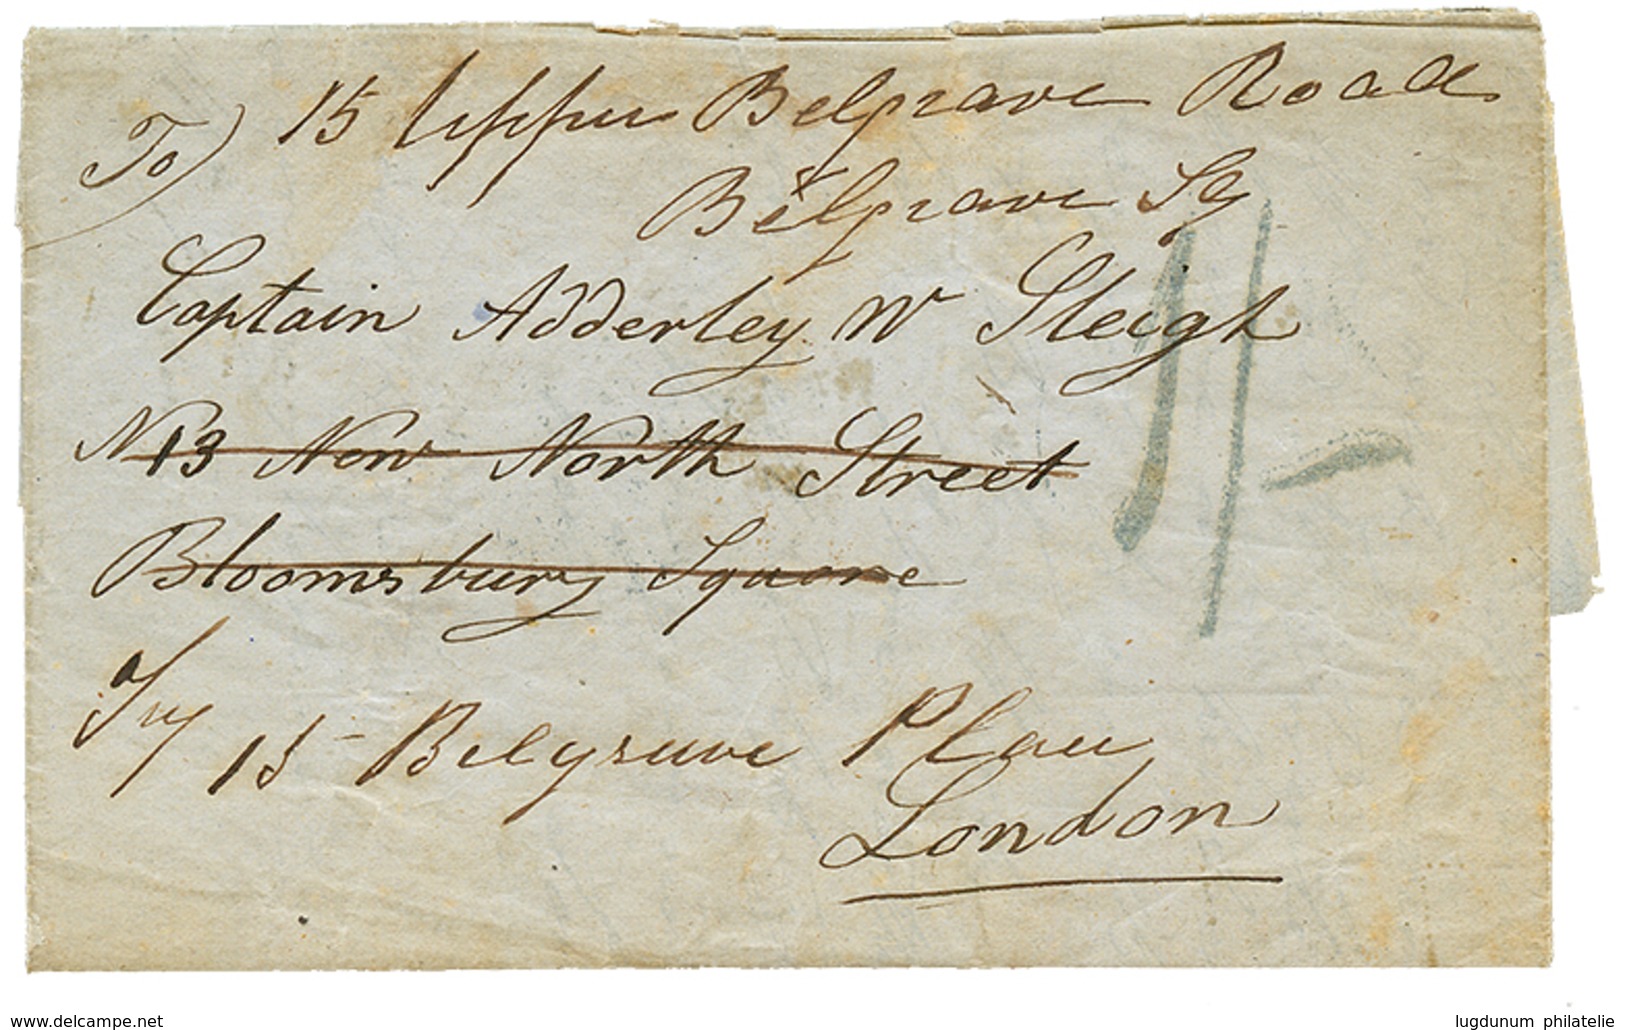 To) 15 Upper Belgrave Road
Belgrave Sq
Captain Adderley W Sleigh
N 13 New North Street
Bloomsbury Square
Try 15 Belgrave Place
London
1/-
www.delcampe.net
lugdunum philatelie